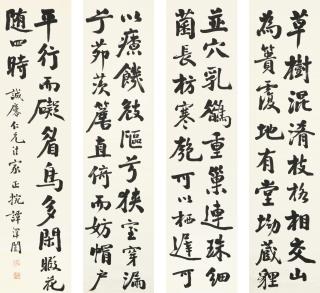 草樹混淆枝格相交山
為簣覆地有堂坳藏貍
並穴乳鵲重巢連珠細
菌長柄寒匏可以棲遲可
以療饑敧嶇兮狹室穿漏
兮茆茨簷直倚而妨帽户
平行而礙眉鳥多閑暇花
随四時
誠廎仁兄法家正捥 譚澤闓